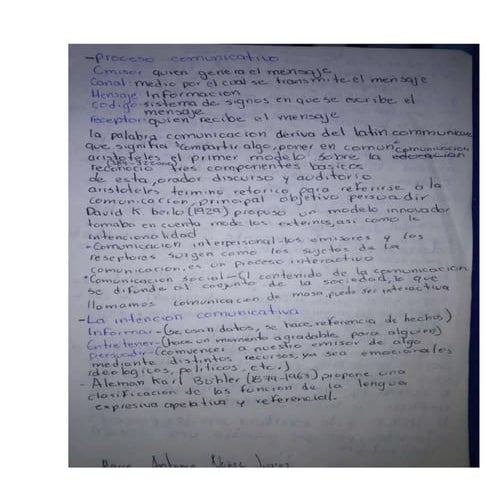 -proceso comunicativo
Emisor quien genera el mensaje
Canal: medio por el cual se transmite el mensaje
Mensaje Informacion
codigo-sistema de signos en que se escribe el
mensaje
receptor-quien recibe el mensaje
la palabra comunicacion deriva del latin
que signifia "compartir algo, poner en comun"
aristoteles el primer modelo sobre la comunicacion
reconocio tres componentes basicos
de esta, orador discurso y auditorio
aristoteles termino retorica para referirse a la
comunicacion, principal objetivo persuadir
David K. berlo (1929) propuso un modelo innovador
tomabo en cuenta mode los externos, asi como la
intencionalidad
-Comunicacion interpersonal-los emisores y los
reseptores surgen como los sujetos de la
comunicacion, es un proceso interactivo
Comunicacion social-El contenido de la comunicacion
se difunde al conjunto de la sociedad, lo que
llamamos comunicacion de masa, puede ser interactiva
-La intencion comunicativa
Informar-(se usan datos, se hace referencia de hechos)
Entretener-(hace un momento agradable para alguien)
persuadir-(convencer a nuestro emisor de algo
mediante distintos recursos, ya sea emocionales
ideologicos, politicos, etc.)
- Aleman Karl Bühler (1879-1963) propone una
clasificacion de las funcion de la lengua
expresiva apelativa y referencial.
Antonio